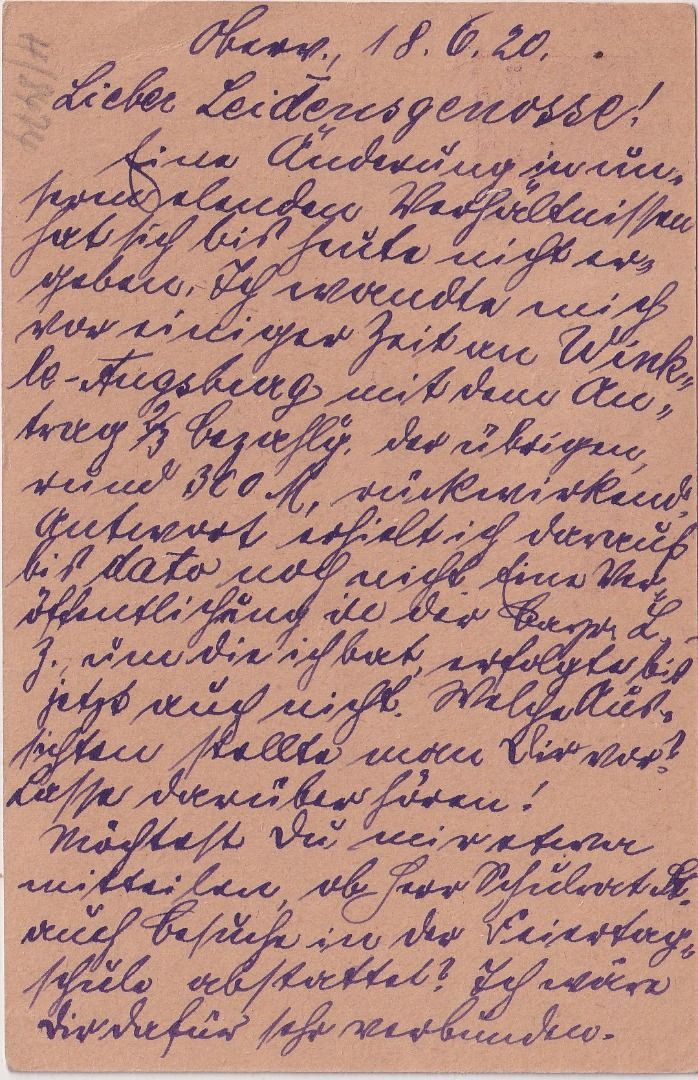 Oberv., 18. 6. 20.
Lieber Leidensgenosse!
Eine Änderung in un-
serem elenden Verhältnissen
hat sich bis heute nicht er-
geben. Ich wandte mich
vor einiger Zeit an Wink-
le-Augsburg mit dem An-
trag 2/3 Bezahlg. der übrigen,
rund 300 M, rückwirkend,
Antwort erhielt ich darauf
bis dato noch nicht. Eine Ver-
öffentlichung in der Bayr. L.-
Z., um die ich bat, erfolgte bis
jetzt auch nicht. Welche Aus-
sichten stellte man Dir vor?
Lasse darüber hören!
Möchtest Du mir etwa
mitteilen, ob Herr Schulrat
auch Besuche in der Feiertag-
schule abstattet? Ich wäre
Dir dafür sehr verbunden.